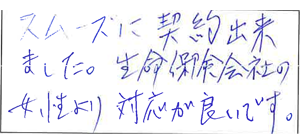 スムーズに契約出来
ました。生命保険会社の
女性より対応が良いです。